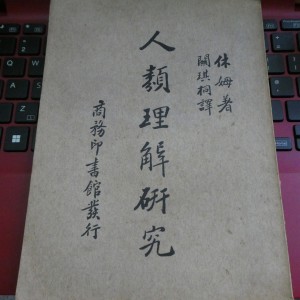 休姆著
關琪桐譯
人類理解研究
商務印書館發行